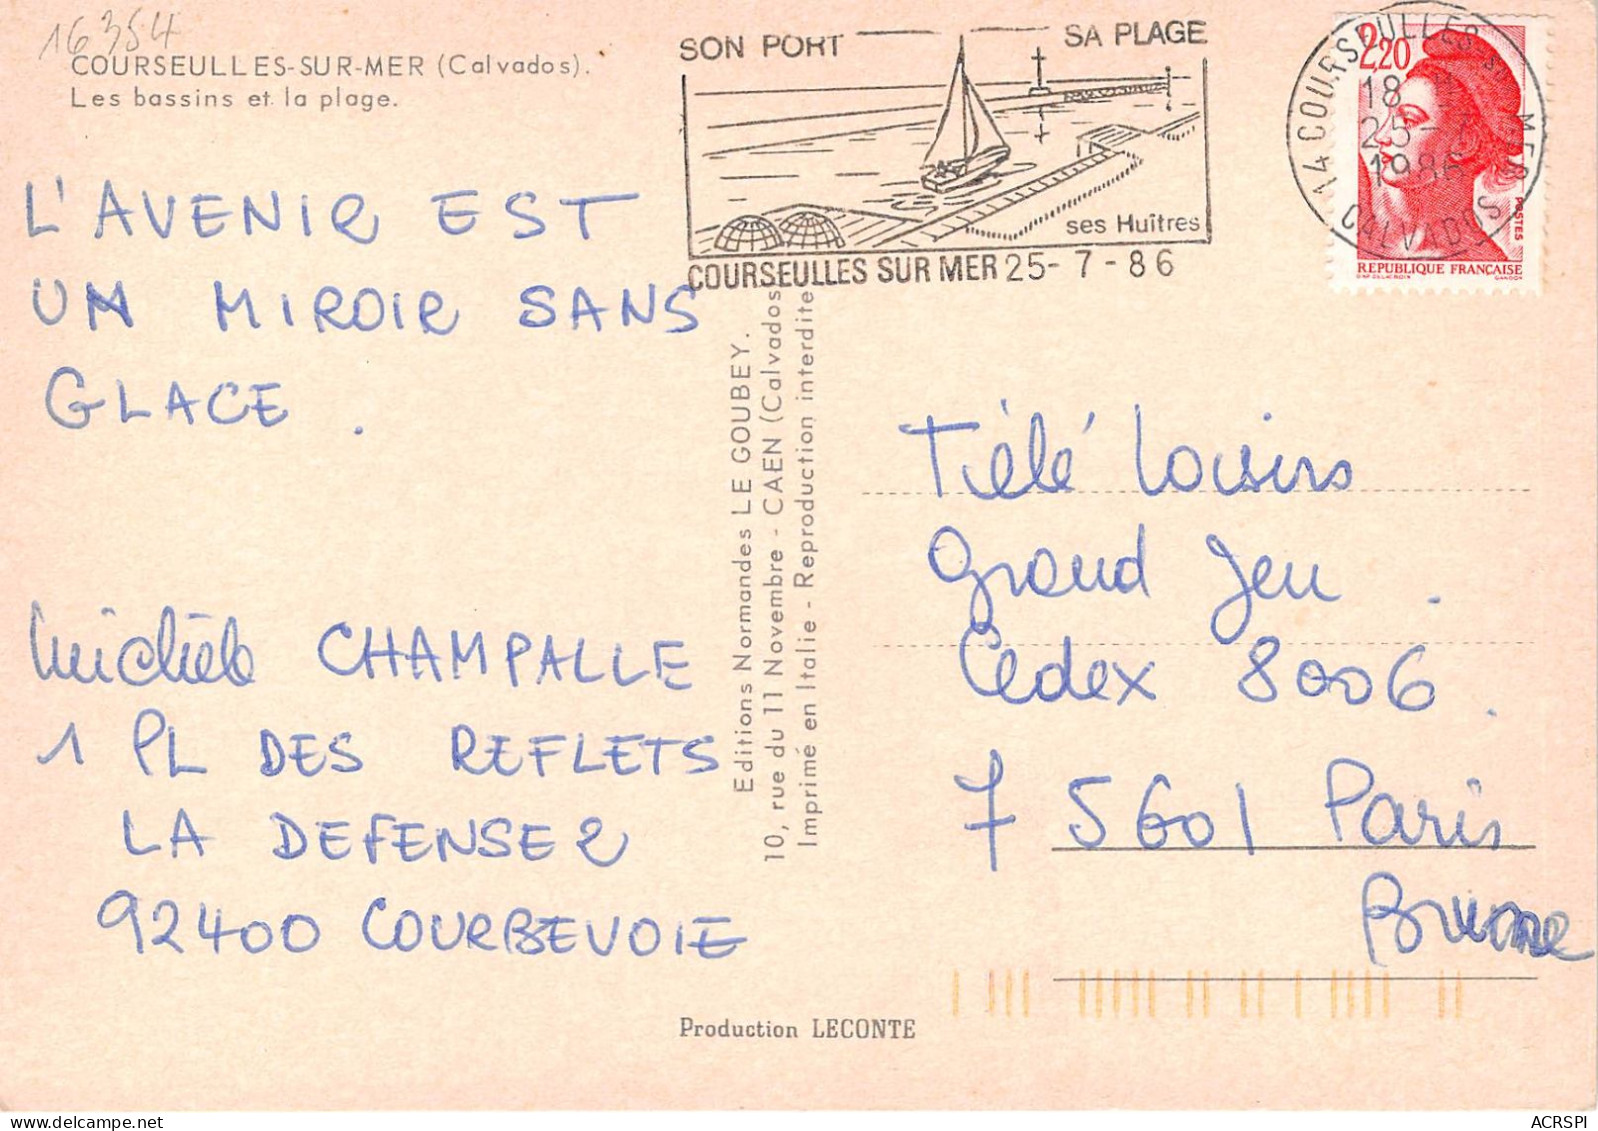 16354
COURSEULLES-SUR-MER (Calvados).
Les bassins et la plage.
SON PORT SA PLAGE
ses Huîtres
COURSEULLES SUR MER 25-7-86
14 COURSEULLES SUR MER
18 H
25-7
1986
CALVADOS
2,20
POSTES
REPUBLIQUE FRANÇAISE
D'AP. DELACROIX GANDON
L'AVENIR EST
UN MIROIR SANS
GLACE.
Michèle CHAMPALLE
1 PL DES REFLETS
LA DEFENSE 2
92400 COURBEVOIE
Editions Normandes LE GOUBEY.
10, rue du 11 Novembre - CAEN (Calvados
Imprimé en Italie - Reproduction interdite
Télé Loisirs
Grand Jeu.
Cedex 8006.
75601 Paris
Brune
Production LECONTE
ACRSPI